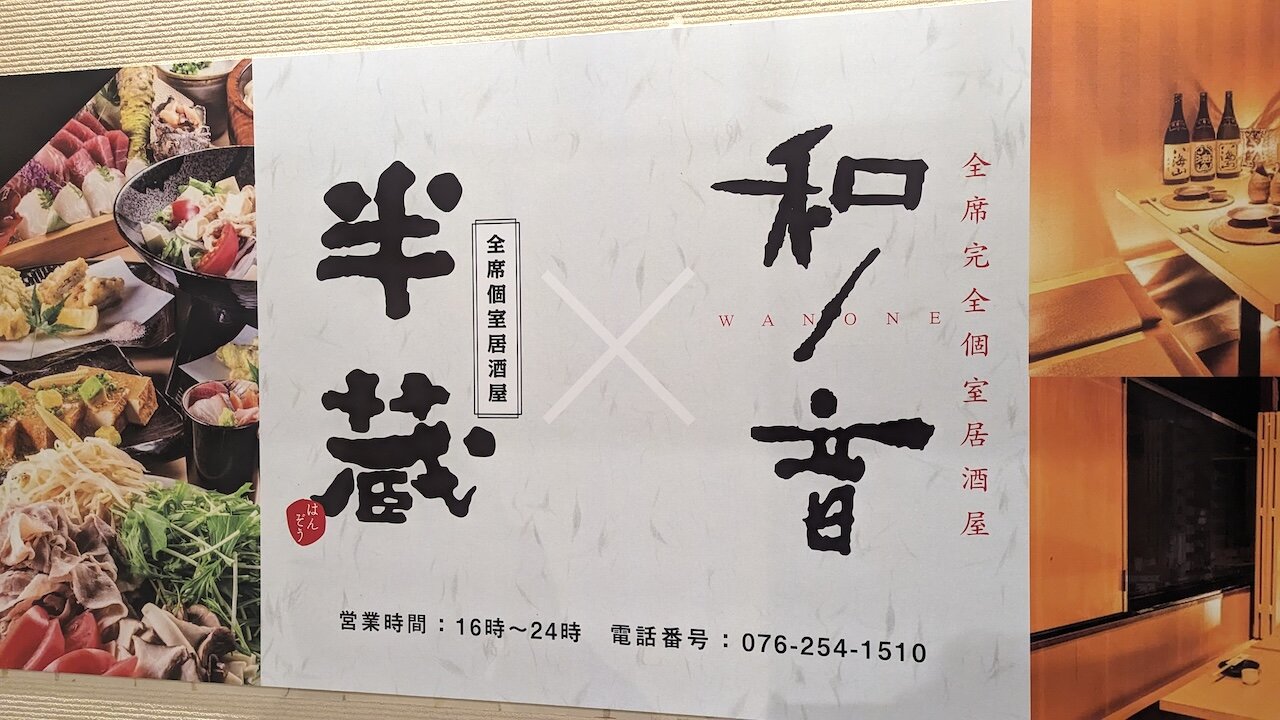 全席完全個室居酒屋
和ノ音
WANONE
×
全席個室居酒屋
半蔵
はんぞう
営業時間：16時〜24時　電話番号：076-254-1510